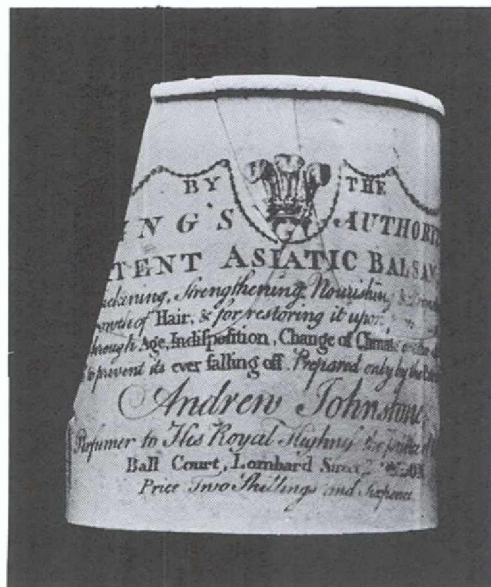 BY THE
NG'S AUTHORI
TENT ASIATIC BALSAM
Strengthening, Nourishing &
owth of Hair, & for restoring it upon
through Age, Indisposition, Change of Climate
to prevent its ever falling off. Prepared only by the
Andrew Johnstone
Perfumer to His Royal Highness the prince
Ball Court, Lombard Street
Price Two Shillings and Sixpence